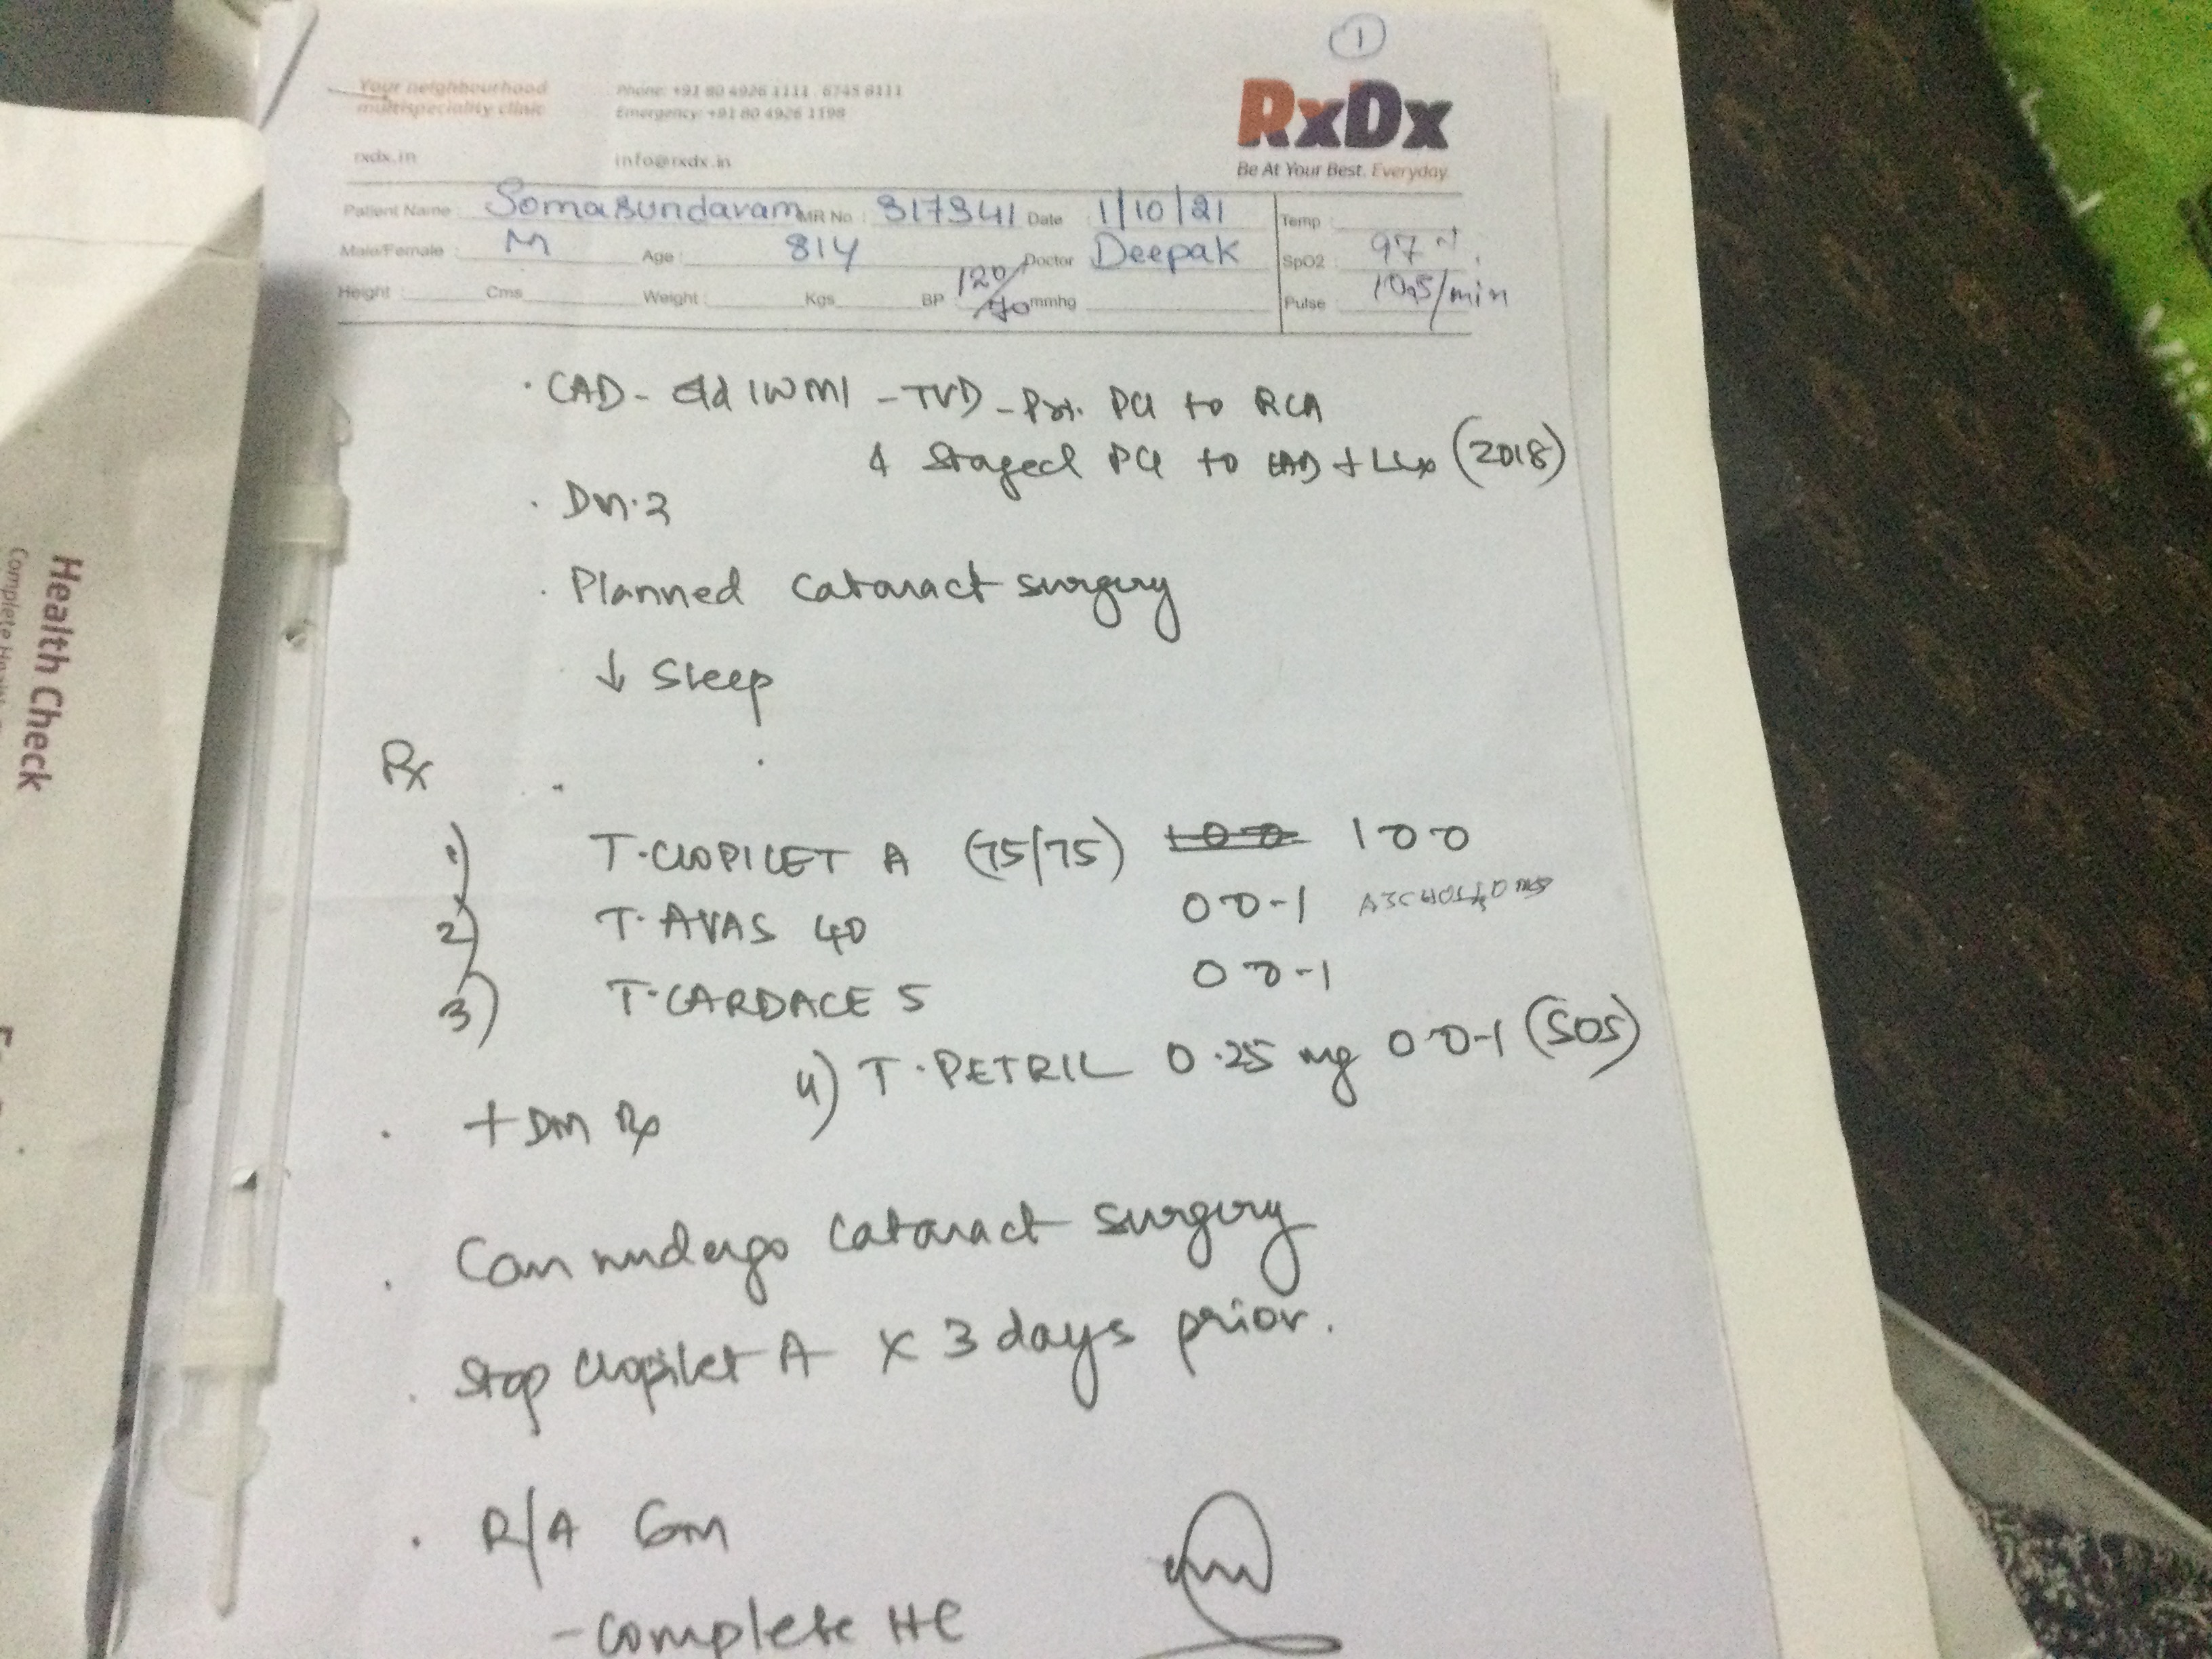 1
Your neighbourhood
multispeciality clinic
Phone: +91 80 4926 1111, 6745 8111
Emergency: +91 80 4926 1198
RxDx
Be At Your Best. Everyday.
rxdx.in
info@rxdx.in
Patient Name : Somasundaram MR No : 317341 Date 1/10/21 Temp :
Male/Female : M Age : 81y Doctor Deepak SpO2 : 97
Height : Cms Weight : Kgs BP 120/70 mmhg Pulse 105/min
. CAD - old IWMI - TVD - Pri. PCI to RCA
& staged PCI to LAD + LCx (2018)
. DM.2
. Planned cataract surgery
↓ Sleep
Rx
1) T. CLOPILET A (75/75) 1 0 0 1 0 0
2) T. AVAS 40 0 0-1
3) T. CARDACE 5 0 0-1
4) T. PETRIL 0.25 mg 0 0-1 (SOS)
. + DM Rx
. Can undergo cataract surgery
. Stop Clopilet A x 3 days prior.
. R/A 6m
- Complete HC
Health Check